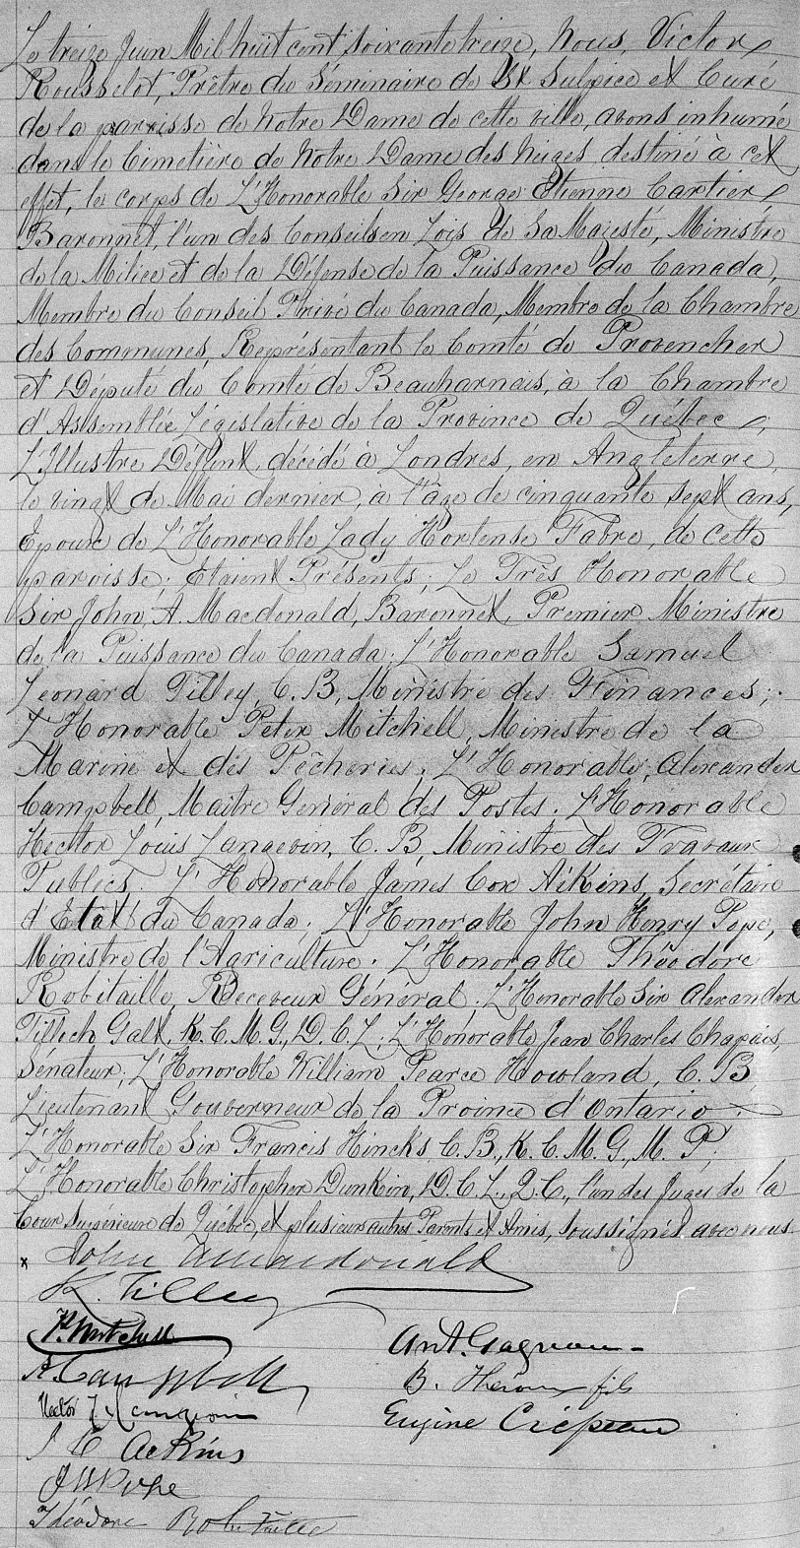 Le treize Juin Mil huit cent soixante treize, Nous, Victor
Rousselot, Prêtre du Séminaire de St Sulpice et Curé
de la paroisse de Notre Dame de cette ville, avons inhumé
dans le Cimetière de Notre Dame des Neiges destiné à cet
effet, le corps de L'Honorable Sir George Etienne Cartier,
Baronnet, l'un des Conseils en Lois de Sa Majesté, Ministre
de la Milice et de la Défense de la Puissance du Canada,
Membre du Conseil Privé du Canada, Membre de la Chambre
des Communes, Représentant le Comté de Provencher
et Député du Comté de Beauharnais, à la Chambre
d'Assemblée Législative de la Province de Québec,
L'Illustre Défunt, décédé à Londres, en Angleterre,
le vingt de Mai dernier, à l'âge de cinquante sept ans,
Epoux de L'Honorable Lady Hortense Fabre, de cette
paroisse; Etaient Présents; Le Très Honorable
Sir John, A. Macdonald, Baronnet, Premier Ministre
de la Puissance du Canada; L'Honorable Samuel
Leonard Tilley, C. B, Ministre des Finances;
L'Honorable Peter Mitchell, Ministre de la
Marine et des Pêcheries; L'Honorable, Alexander
Campbell, Maitre Général des Postes; L'Honorable
Hector Louis Langevin, C. B, Ministre des Travaux
Publics. L'Honorable James Cox Aikins, Secrétaire
d'Etat du Canada; L'Honorable John Henry Pope,
Ministre de l'Agriculture. L'Honorable Théodore
Robitaille, Receveur Général; L'Honorable Sir Alexander
Tilloch Galt, K. C. M. G., D. C. L; L'Honorable Jean Charles Chapais,
Sénateur, L'Honorable William Pearce Howland, C. B,
Lieutenant Gouverneur de la Province d'Ontario
L'Honorable Sir Francis Hincks, C. B., K. C. M. G., M. P.
L'Honorable Christopher Dunkin, D. C. L., Q. C., l'un des Juges de la
Cour Supérieure de Québec, et plusieurs autres Parents et Amis, soussignés avec nous.
x John A Macdonald
Tilley
P. Mitchell Ant. Gagnon
A. Campbell B. fils
Hector L. Langevin Eugène Crépeau
J C Aikins
J H Pope
Théodore Robitaille